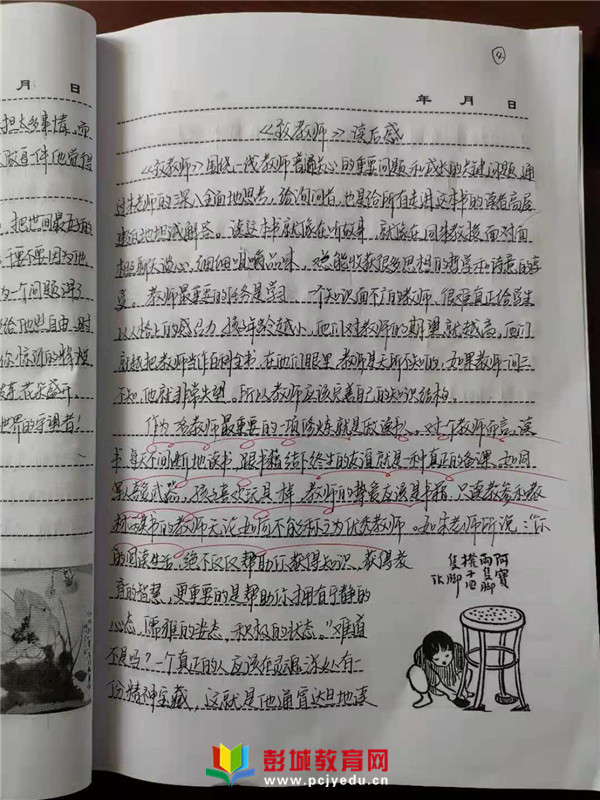 月 日
担太多事情,而
把世间最美好的
千万不要因为他
为一个问题
给他些自由、时
世界的守望者!
④
年 月 日
《致教师》读后感
《致教师》围绕一线教师普遍关心的重要问题和成长的关键问题,通
过朱老师的深入全面地思考,给询问者,也是给所有走进这本书的读者高屋
建瓴地坦诚解答。读这本书就像在听故事,就像在同朱教授面对面
相坐聊天谈心,细细咀嚼品味,总能收获很多思想的哲学和诗意的享
受。教师最重要的任务是学习,一个知识面不广的教师,很难真正给学生
以人格上的感召力。孩子年龄越小,他们对教师的期望就越高,他们
就越把教师当作百科全书。在他们眼里,教师是无所不知的,如果教师一问三
不知,他就非常失望。所以教师应该完善自己的知识结构。
作为一名教师最重要的一项修炼就是做读书。对一个教师而言,读
书是天天不间断地读书,跟书籍结下终生的友谊就是一种真正的备课,如同
军人喜爱武器,孩子喜欢玩具一样,教师的挚爱应该是书籍,只读教参和教
材两类书的教师无论如何不能称之为优秀教师。如朱老师所说:“你
的阅读生活,绝不仅仅帮助你获得知识、获得教
育的智慧,更重要的是帮助你拥有宁静的
心态、儒雅的姿态,积极的状态。”难道
不是吗?一个真正的人应该在灵魂深处有一
份精神宝藏,这就是他通宵达旦地读
阿寶兩隻脚
橙子四隻脚
彭城教育网
www.pcjyedu.cn